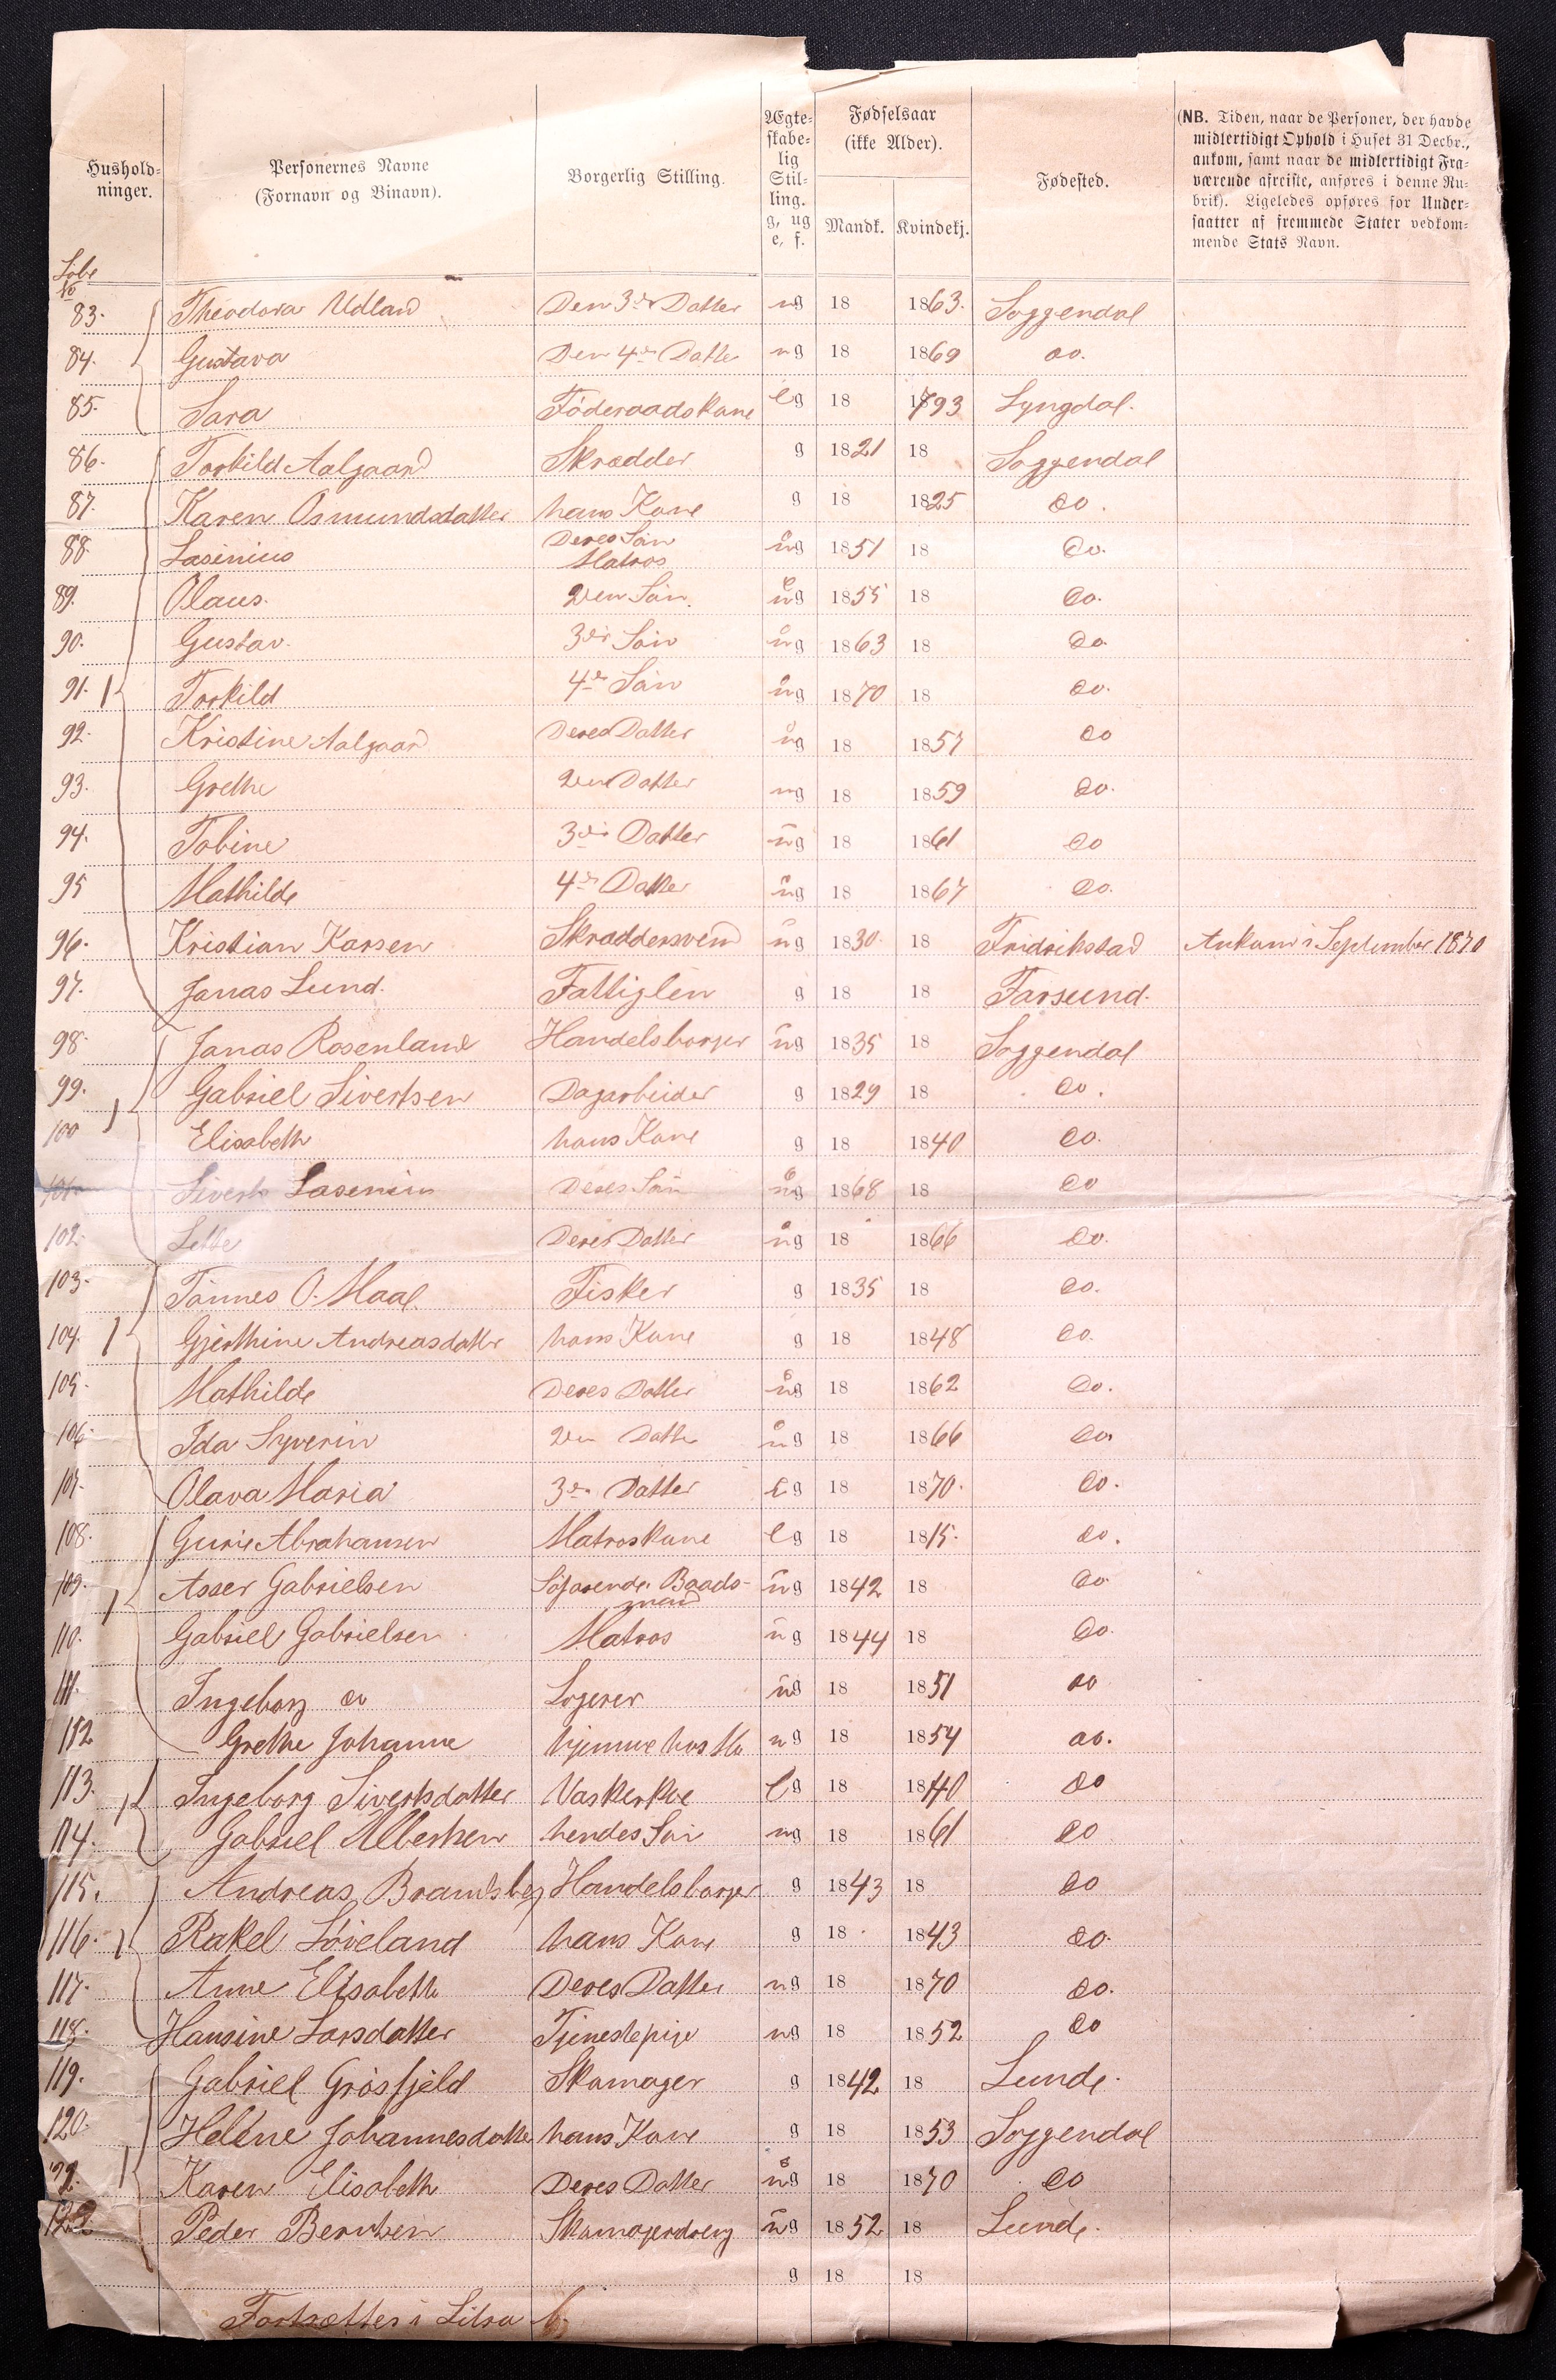 Hushold-
ninger.
Personernes Navne
(Fornavn og Binavn).
Borgerlig Stilling.
Ægte-
skabe-
lig
Stil-
ling.
g, ug
e, f.
Fødselsaar
(ikke Alder).
Mandk. Kvindekj.
Fødested.
(NB. Tiden, naar de Personer, der havde
midlertidigt Ophold i Huset 31 Decbr.,
ankom, samt naar de midlertidigt Fra-
værende afreiste, anføres i denne Ru-
brik). Ligeledes opføres for Under-
saatter af fremmede Stater vedkom-
mende Stats Navn.
Löbe
No
83. Theodora Udland Den 3die Datter ug 18 1863. Soggendal
84. Gustava Den 4de Datter ug 18 1869 do.
85. Sara Föderaadskone eg 18 1793 Lyngdal.
86. Torkild Aalgaard Skrædder g 1821 18 Soggendal
87. Karen Osmundsdatter hans Kone g 18 1825 do.
88. Lasenius Deres Sön Matros ug 1851 18 do.
89. Olaus. 2den Sön ug 1855 18 do.
90. Gustav. 3die Sön ug 1863 18 do
91. 1 Torkild 4de Sön ug 1870 18 do.
92. Kristine Aalgaard Deres Datter ug 18 1857 do
93. Grethe 2den Datter ug 18 1859 do.
94. Tobine 3die Datter ug 18 1861 do
95 Mathilde 4de Datter ug 18 1867 do.
96. Kristian Karsen Skræddersvend ug 1830. 18 Fridrikstad Ankom i September 1870
97. Jonas Lund. Fattiglem g 18 18 Farsund.
98. Jonas Rosenland Handelsborger ug 1835 18 Soggendal
99. Gabriel Sivertsen Dagarbeider g 1829 18 do.
100 Elisabeth hans Kone g 18 1840 do.
101 Sivert Lasenius Deres Sön ug 1868 18 do
102. Deres Datter ug 18 1866 do.
103. Tönnes O. Maal. Fisker g 1835 18 do.
104. 1 Gjerthine Andreasdatter hans Kone g 18 1848 do.
105. Mathilde Deres Datter ug 18 1862 do.
106. Ida Syverin 2den Datter ug 18 1866 do
107. Olava Maria 3die Datter eg 18 1870. do.
108. Gurie Abrahamsen Matroskone eg 18 1815. do.
109. 1 Asser Gabrielsen Söfarende Baads-
mand ug 1842 18 do
110. Gabriel Gabrielsen Matros ug 1844 18 do.
111. Ingeborg do Logerer ug 18 1851 do
112 Grethe Johanne hjemme hos Mo ug 18 1854 do.
113. 1 Ingeborg Sivertsdatter Vaskerkone eg 18 1840 do
114. Gabriel Albertsen hendes Sön ug 18 1861 do
115. Andreas Handelsborger g 1843 18 do
116. 1 Rakel Løveland hans Kone g 18 1843 do.
117. Anne Elisabeth Deres Datter ug 18 1870 do.
118. Hansine Larsdatter Tjenestepige ug 18 1852 do
119. Gabriel Grösfjeld Skomager g 1842 18 Lunde.
120. Helene Johannesdatter hans Kone g 18 1853 Soggendal
121. 1 Karen Elisabeth Deres Datter ug 18 1870 do
122 Peder Berntsen Skomagerdreng ug 1852 18 Lunde.
g 18 18
Fortsættes i Litra b.